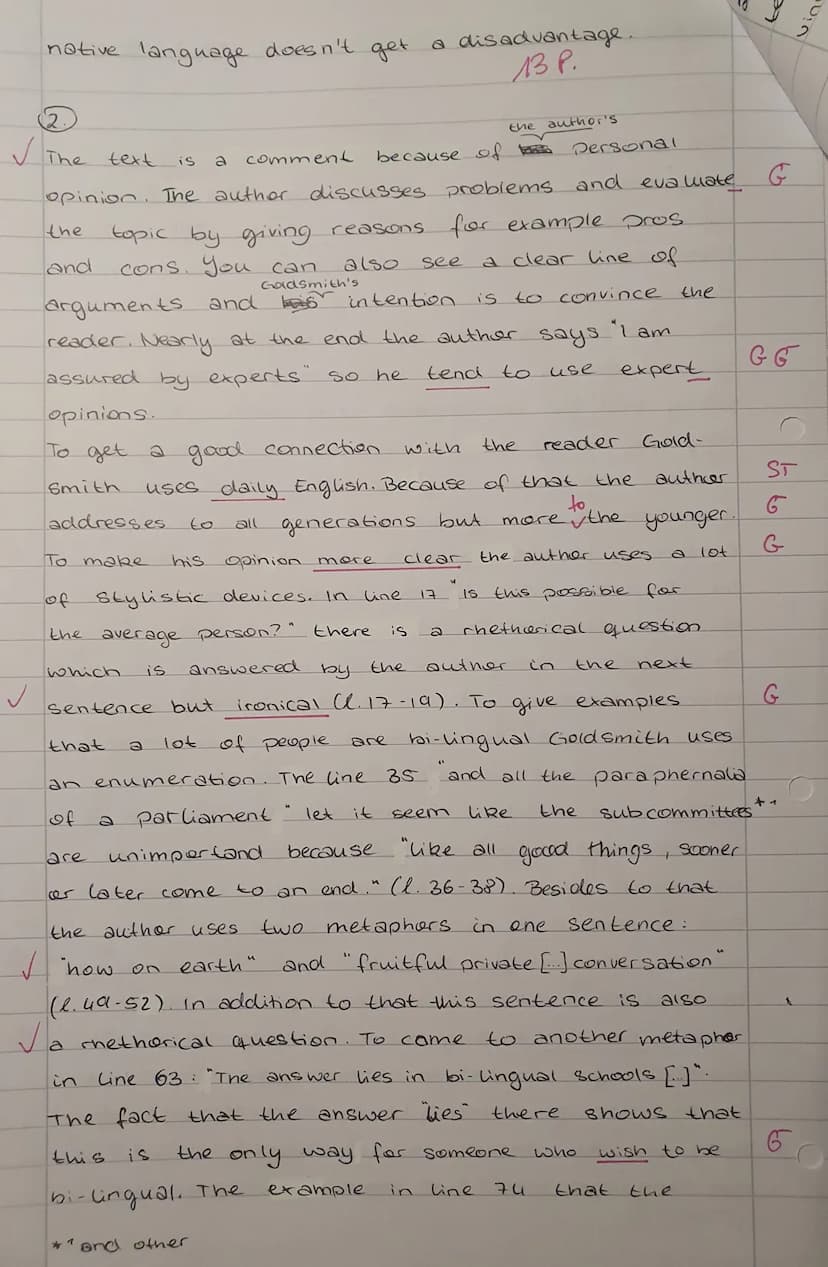 native language doesn't get a disadvantage.
13 P.
2.
the author's
✓ The text is a comment because of personal
opinion. The author discusses problems and evaluate G
the topic by giving reasons for example pros
and cons. You can also see a clear line of
Goldsmith's
arguments and his intention is to convince the
reader. Nearly at the end the author says "I am
assured by experts" so he tend to use expert G G
opinions.
To get a good connection with the reader Gold-
smith uses daily English. Because of that the author ST
to
addresses to all generations but more the younger. G
To make his opinion more clear the author uses a lot G
of stylistic devices. In line 17 "Is this possible for
the average person?" there is a rhetherical question
which is answered by the author in the next
✓ sentence but ironical (l. 17-19). To give examples G
that a lot of people are bi-lingual Goldsmith uses
an enumeration. The line 35 "and all the paraphernalia
of a parliament" let it seem like the subcommittees*¹
are unimportand because "like all good things, sooner
or later come to an end." (l. 36-38). Besides to that
the author uses two metaphors in one sentence:
✓ "how on earth" and "fruitful private [...] conversation"
(l. 49-52). In addition to that this sentence is also
✓ a rhetherical question. To come to another metapher
in line 63: "The answer lies in bi-lingual schools [...]".
The fact that the answer "lies" there shows that
this is the only way for someone who wish to be G
bi-lingual. The example in line 74 that the
*¹ and other